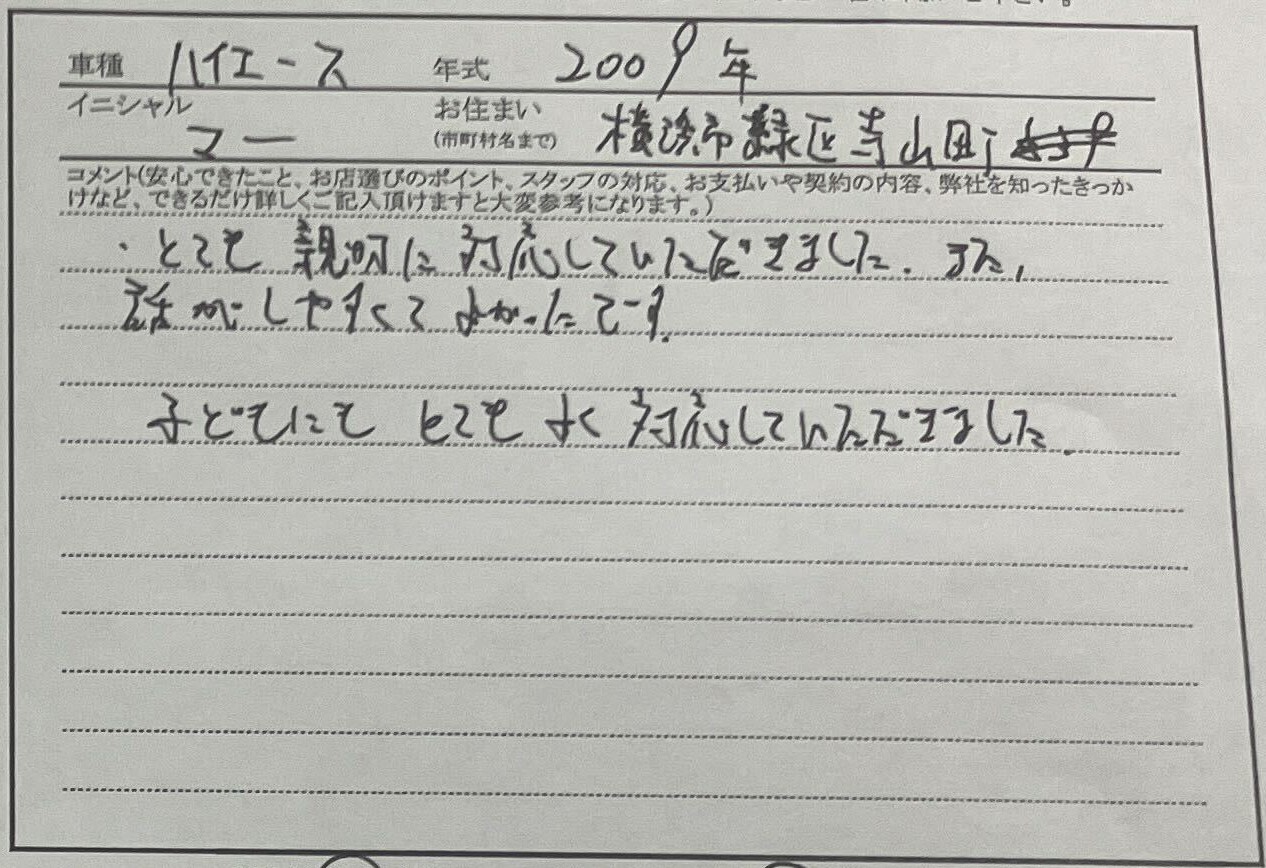 車種 ハイエース 年式 2009年
イニシャル マー お住まい(市町村名まで) 横浜市緑区寺山町
コメント(安心できたこと、お店選びのポイント、スタッフの対応、お支払いや契約の内容、弊社を知ったきっか
けなど、できるだけ詳しくご記入頂けますと大変参考になります。)
・とても親切に対応していただきました。また、
話がしやすくてよかったです。
子どもにもとてもよく対応していただきました。